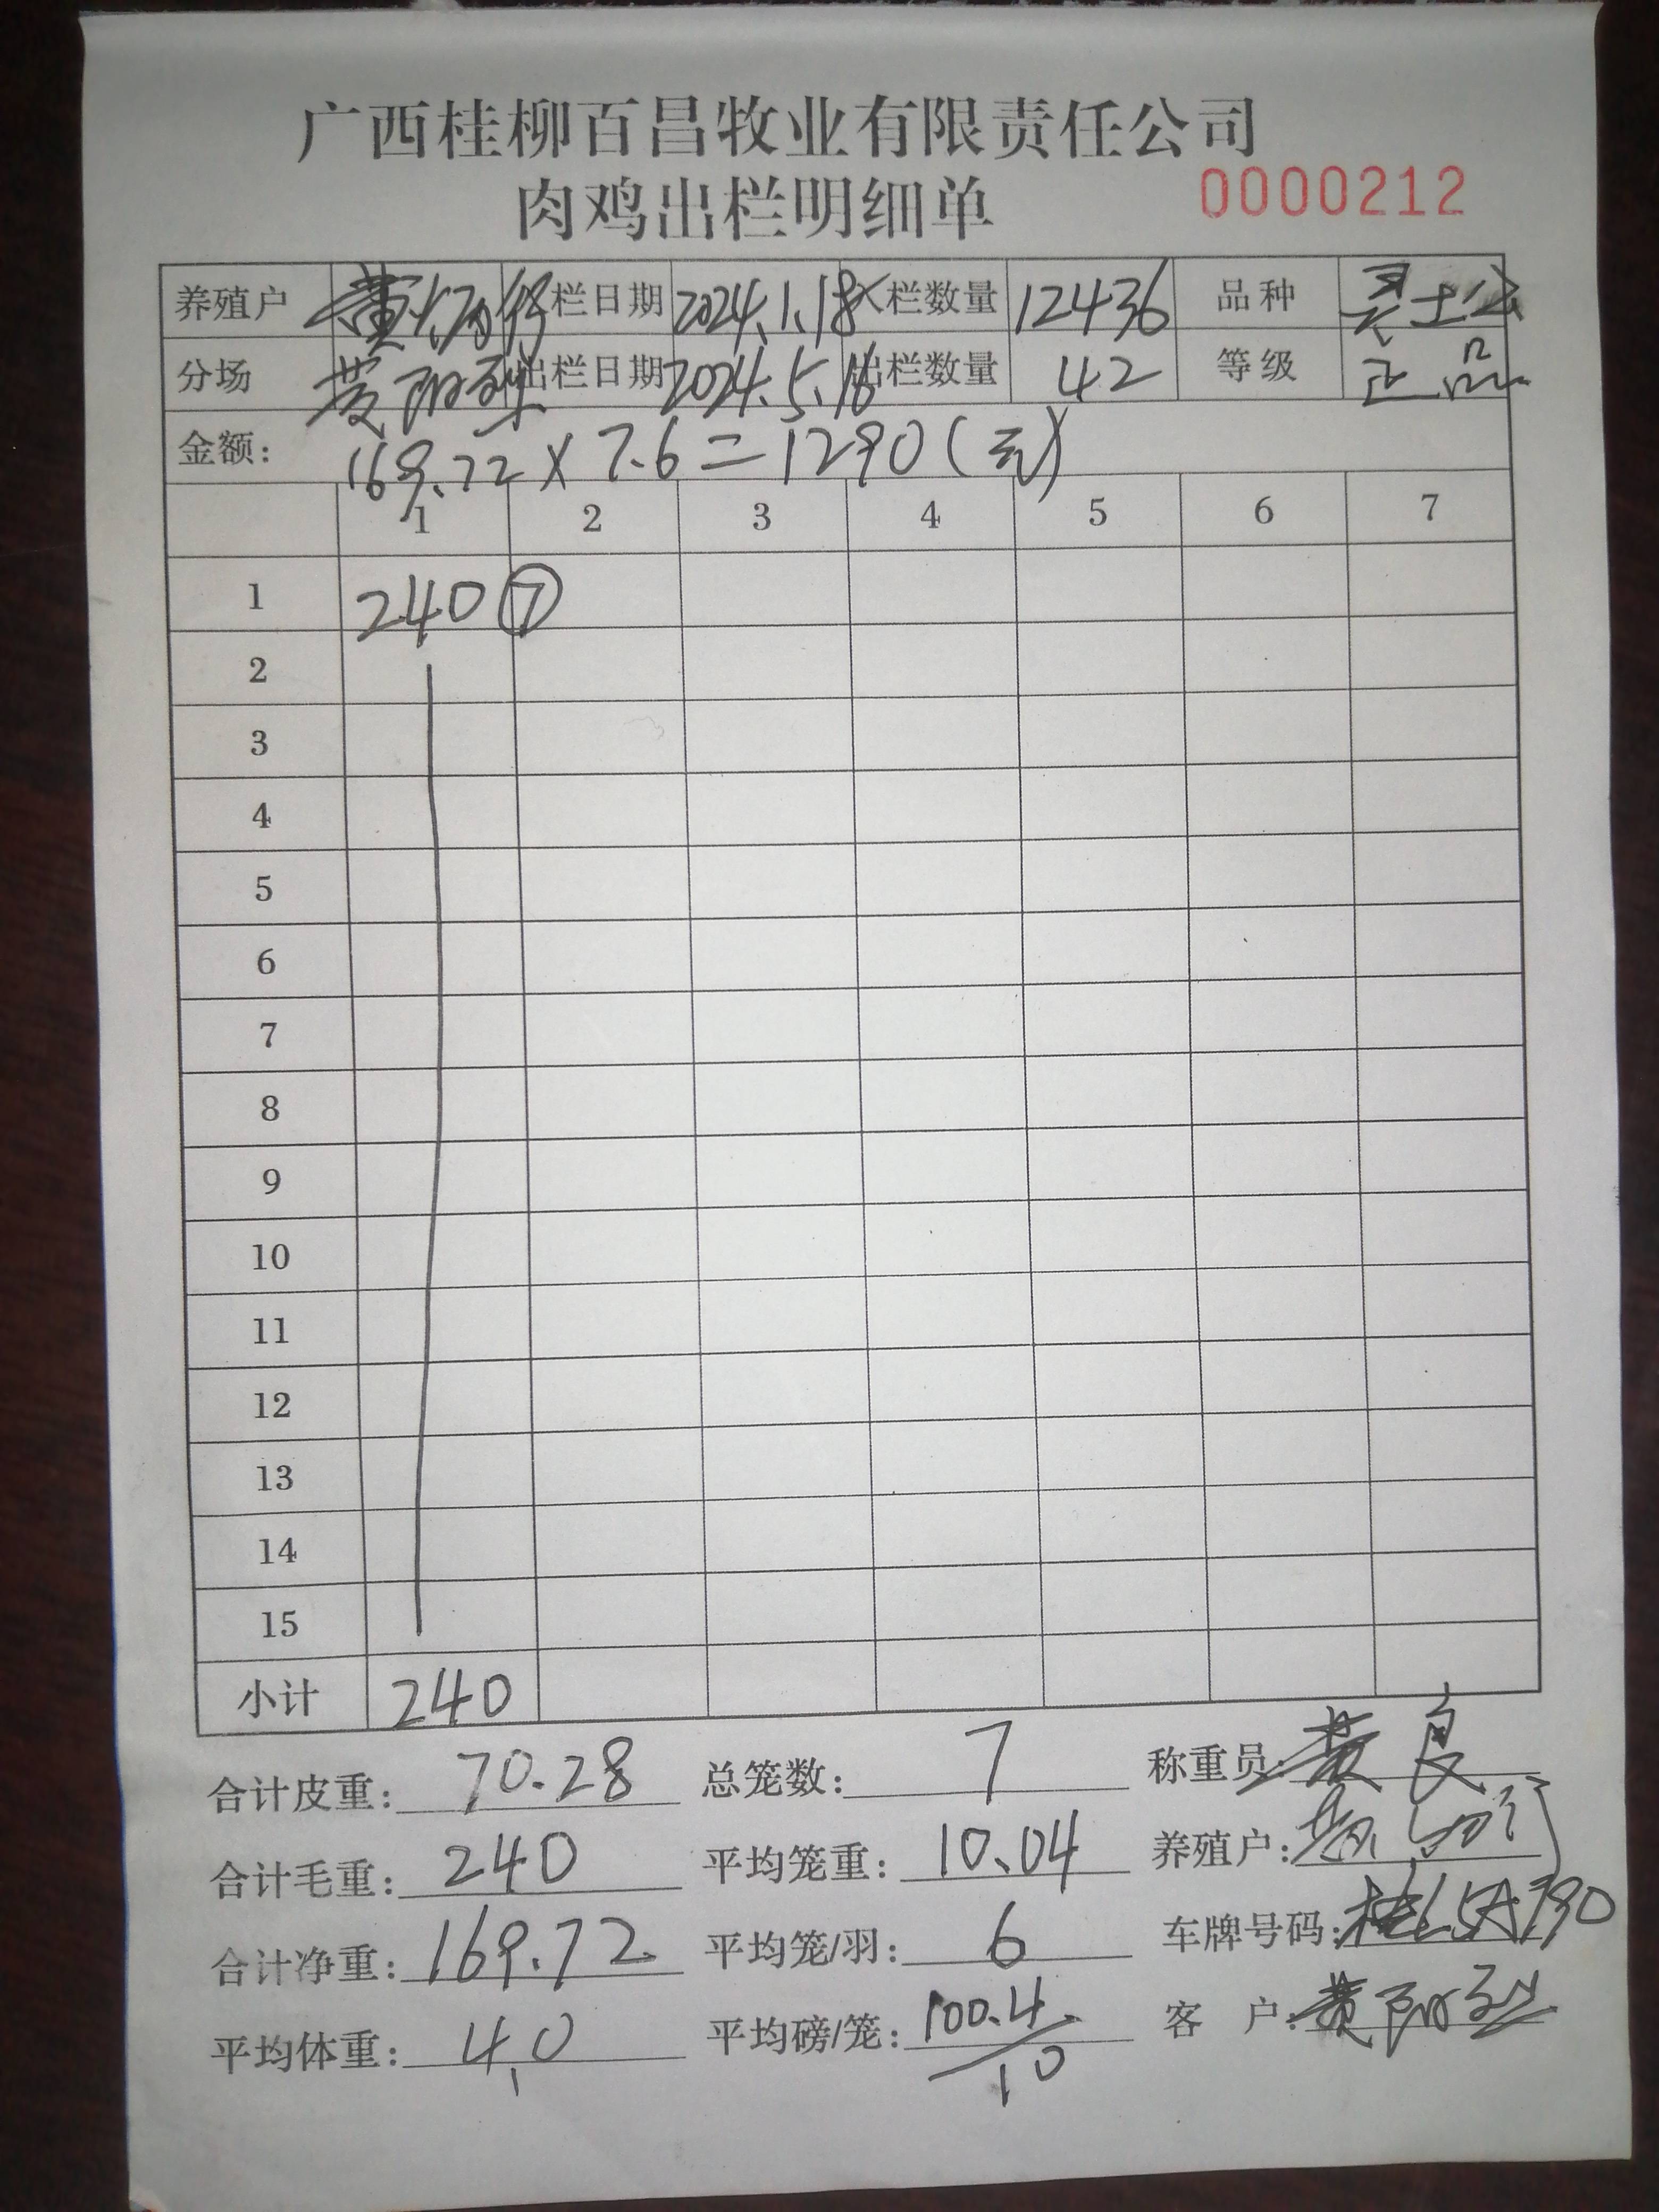 广西桂柳百昌牧业有限责任公司
肉鸡出栏明细单 0000212
养殖户 黄 栏日期 2024.1.18 入栏数量 12436 品种 土公
分场 黄 出栏日期 2024.5.16 出栏数量 42 等级 正品
金额: 169.72×7.6=1290(元)
1 2 3 4 5 6 7
1 240 ⑦
2
3
4
5
6
7
8
9
10
11
12
13
14
15
小计 240
合计皮重: 70.28 总笼数: 7 称重员: 黄良
合计毛重: 240 平均笼重: 10.04 养殖户: 黄
合计净重: 169.72 平均笼/羽: 6 车牌号码: 桂
平均体重: 4.0 平均磅/笼: 100.4/10 客户: 黄